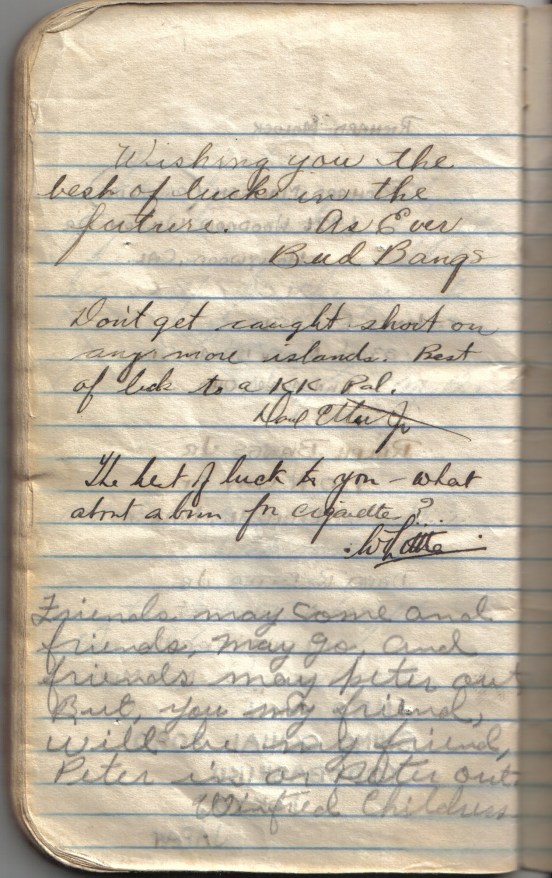 Wishing you the
best of luck in the
future. As Ever
Bud Bangs
Don't get caught short on
any more islands. Best
of luck to a KK Pal.
Etter Jr
The best of luck to you - what
about a bum for cigarette?
Friends may come and
friends, may go, and
friends may peter out
But, you my friend,
will be my friend,
Peter in or peter out.
Winfred Childress